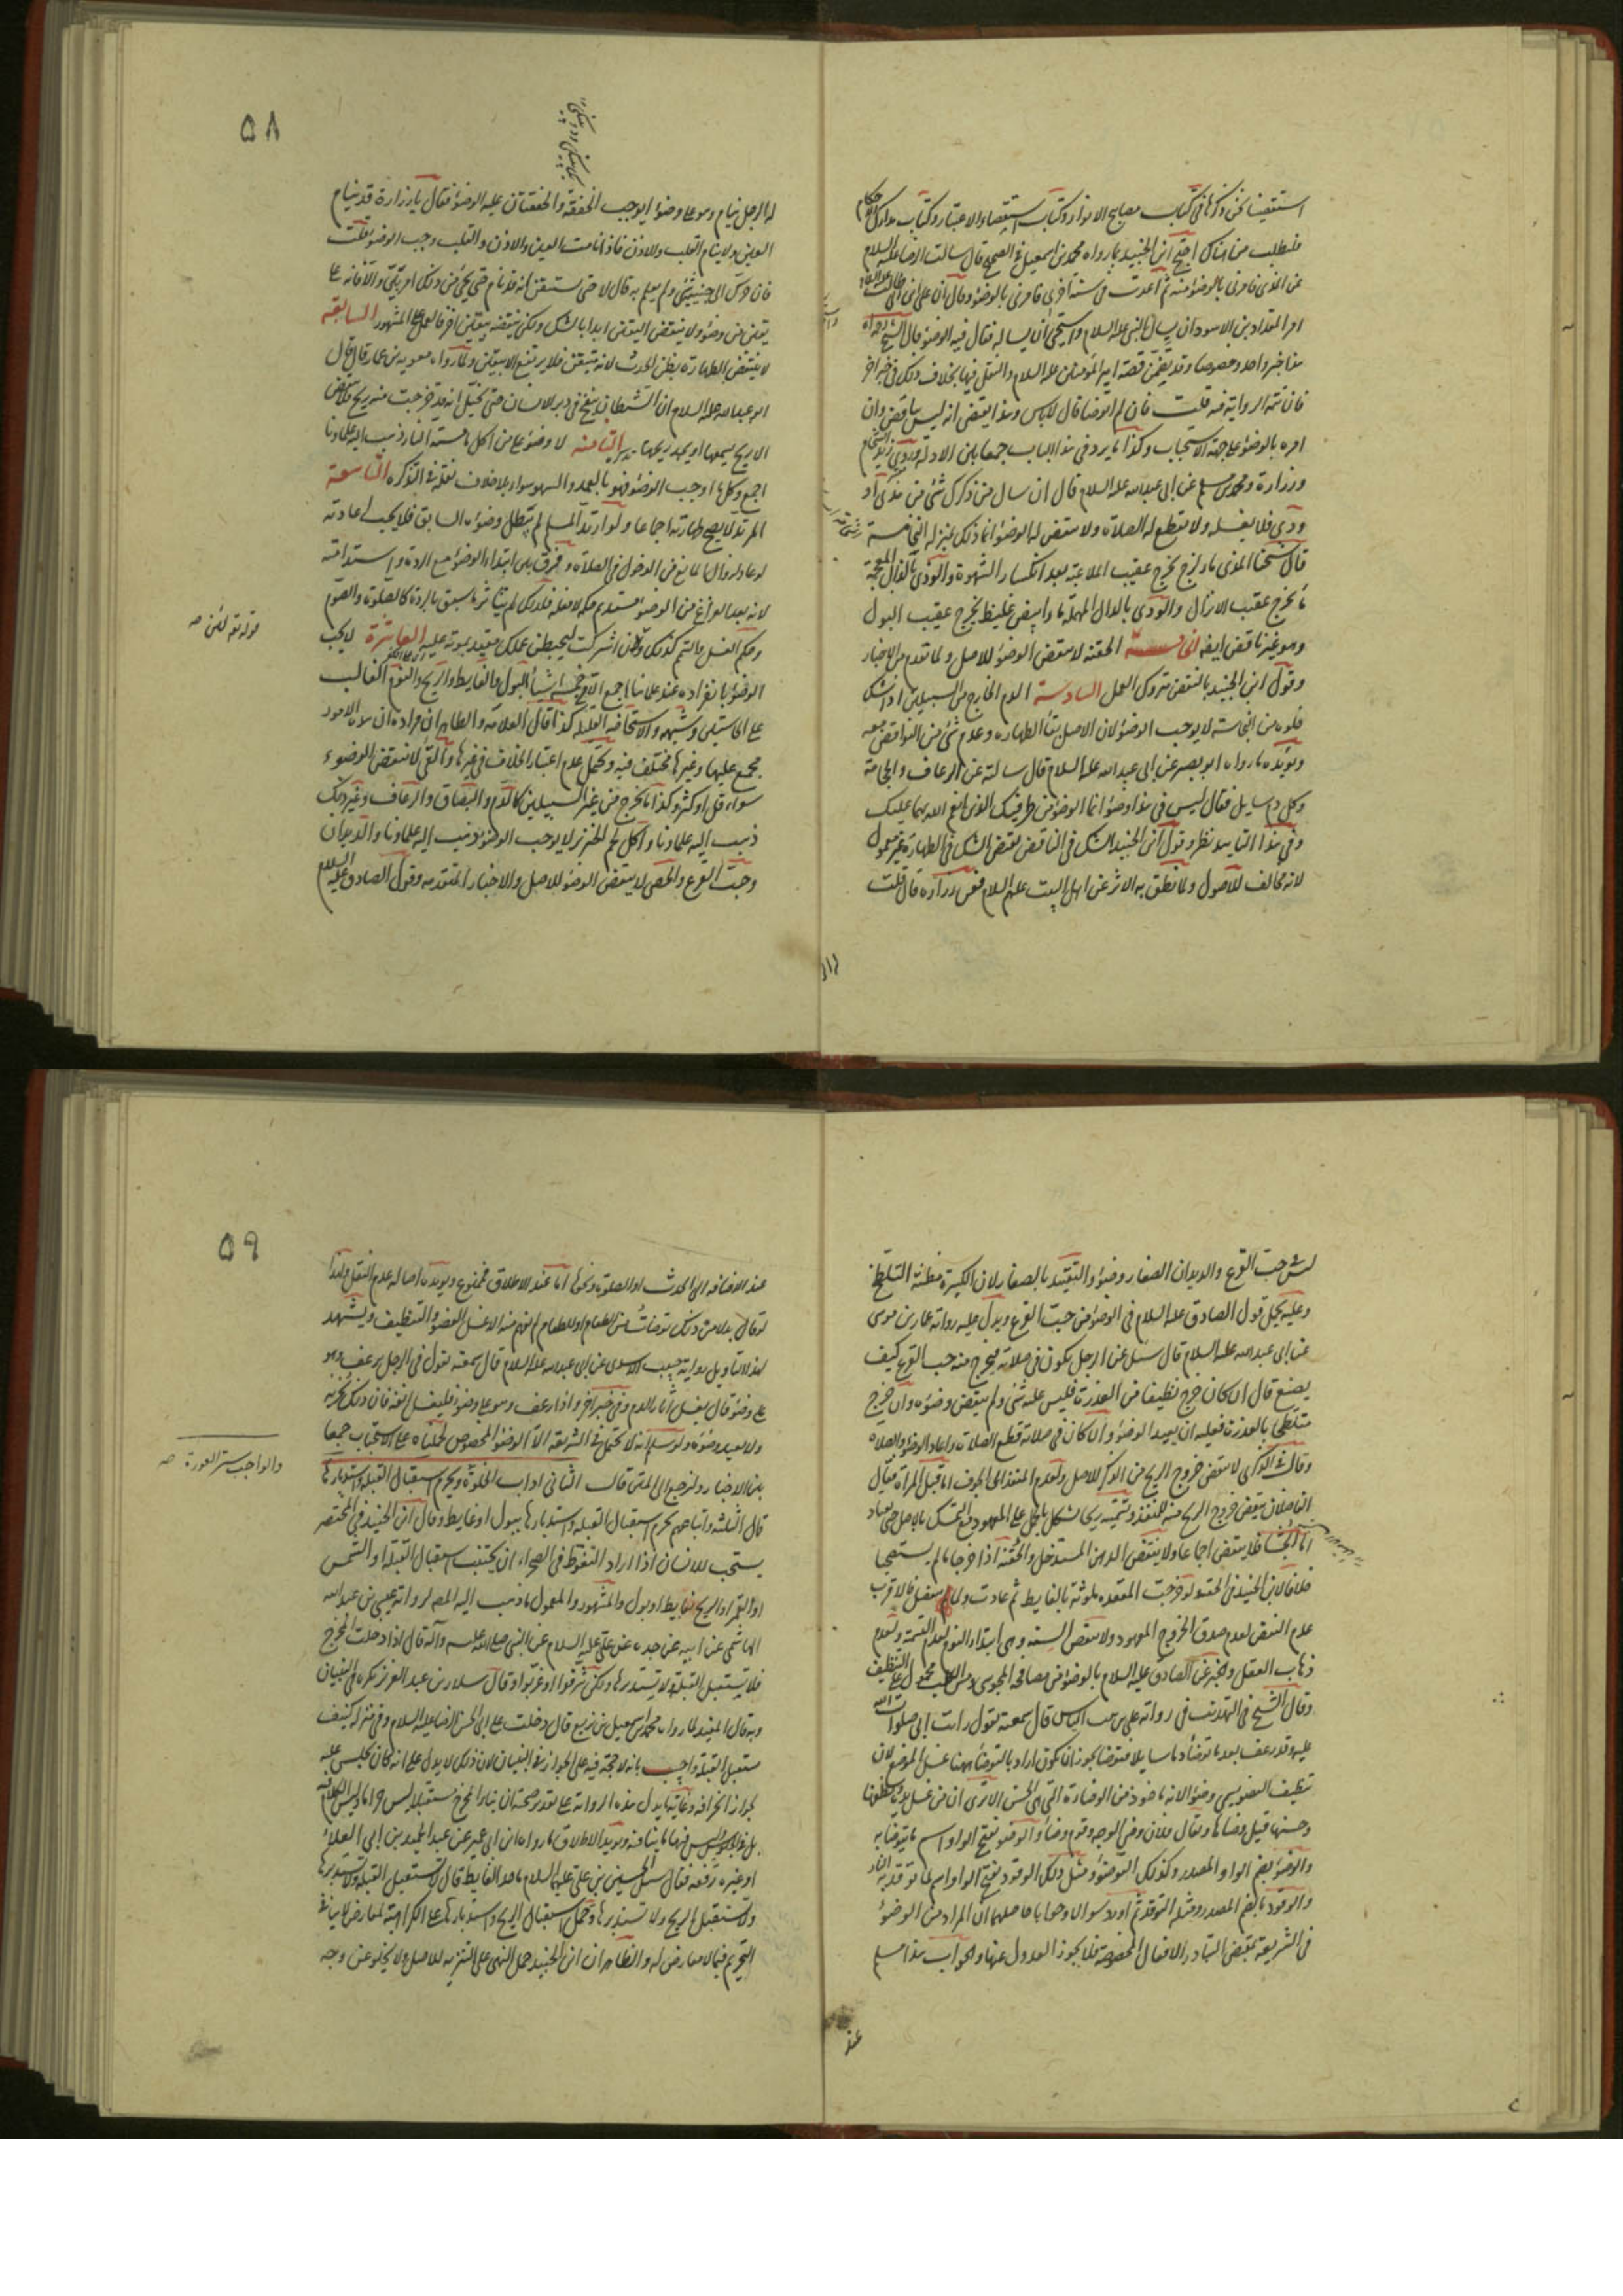 استقصينا نحن ذكرها في كتاب مصابيح الانوار وكتاب استقصاء الاعتبار وكتاب مدارك الاحكام
فليطلب من هناك احتج ابن الجنيد بما رواه محمد بن اسمعيل في الصحيح قال سالت الرضا عليه السلام
عن المذي فامرني بالوضوء منه ثم اعدت في سنة اخرى فامرني بالوضوء وقال ان علي بن ابي طالب عليه السلام
امر المقداد بن الاسود ان يسال النبي عليه السلام واستحيى ان يساله فقال فيه الوضوء قال الشيخ رحمه الله
هذا خبر واحد وخصوصا وقد تضمن قصة امير المؤمنين عليه السلام والنقل فيها بخلاف ذلك في خبر اخر
فان تتمة الرواية فيه قلت فان لم اتوضا قال لا باس وهذا يقتضي انه ليس بناقض وان
امره بالوضوء على جهة الاستحباب وكذا ما يرد في هذا الباب جمعا بين الادلة وروى زيد الشحام
وزرارة ومحمد بن مسلم عن ابي عبد الله عليه السلام قال ان سال من ذكرك شيء من مذي او
ودي فلا يغسله ولا تقطع له الصلاة ولا تنقض له الوضوء انما ذلك بمنزلة النخامة
قال شيخنا المذي ماء لزج يخرج عقيب الملاعبة بعد انكسار الشهوة والوذي بالذال المعجمة
ما يخرج عقيب الانزال والودي بالدال المهملة ماء ابيض غليظ يخرج عقيب البول
وهو غير ناقض ايضا الخامسة الحقنة لا تنقض الوضوء للاصل ولما تقدم من الاخبار
وقول ابن الجنيد بالنقض متروك العمل السادسة الدم الخارج من السبيلين اذا شك
خلوه من النجاسة لا يوجب الوضوء لان الاصل بقاء الطهارة وعدم شيء من النواقض معه
ويؤيده ما رواه ابو بصير عن ابي عبد الله عليه السلام قال سالته عن الرعاف والحجامة
وكل دم سايل فقال ليس في هذا وضوء انما الوضوء من طرفيك الذين انعم الله بهما عليك
وفي هذا التاييد نظر وقول ابن الجنيد الشك في الناقض يقتضي الشك في الطهارة غير معمول
لانه مخالف للاصول ولما نطق به الاثر عن اهل البيت عليهم السلام فعن زرارة قال قلت
٥٨
له الرجل ينام وهو على وضوء ايوجب الخفقة والخفقتان عليه الوضوء فقال يا زرارة قد ينام
العين ولا ينام القلب والاذن فاذا نامت العين والاذن والقلب وجب الوضوء قلت
فان حرك الى جنبه شيء ولم يعلم به قال لا حتى يستيقن انه قد نام حتى يجيء من ذلك امر بين والا فانه على
يقين من وضوئه ولا ينقض اليقين ابدا بالشك ولكن ينقضه بيقين اخر فالعمل على المشهور السابعة
لا ينتقض الطهارة بظن الحدث لانه متيقن فلا يرتفع الا بيقين ولما رواه معوية بن عمار قال قال
ابو عبد الله عليه السلام ان الشيطان ينفخ في دبر الانسان حتى يخيل انه قد خرجت منه ريح ولا ينقض
الا ريح يسمعها او يجد ريحها الثامنة لا وضوء على من اكل ما مسته النار ذهب اليه علماؤنا
اجمع وكل ما اوجب الوضوء فهو بالعمد والسهو سواء بلا خلاف نقله في التذكره التاسعة
المرتد لا يصح طهارته اجماعا ولو ارتد المسلم لم يبطل وضوءه السابق فلا يجب اعادته
لو عاد لزوال المانع من الدخول في الصلاة وفرق بين ابتداء الوضوء مع الردة واستدامته
لانه بعد الفراغ من الوضوء مستديم حكمه لا فعله فلذلك لم يتاثر ما سبق بالردة كالصلوة والصوم
وحكم الغسل والتيمم كذلك وقوله لئن اشركت ليحبطن عملك مقيد بموته عليه العاشرة لا يجب
الوضوء بانفراده عند علمائنا اجمع الا في خمسة اشياء البول والغايط والريح والنوم الغالب
على الحاستين وشبهه والاستحاضة القليلة كذا قال العلامة والظاهر ان مراده ان هذه الامور
مجمع عليها وغيرها مختلف فيه ويحتمل عدم اعتبار الخلاف في غيرها والقي لا ينقض الوضوء
سواء قل او كثر وكذا ما يخرج من غير السبيلين كالدم والبصاق والرعاف وغير ذلك
ذهب اليه علماؤنا واكل لحم الخنزير لا يوجب الوضوء ذهب اليه علماؤنا والديدان
وحب القرع والحصى لا ينقض الوضوء للاصل والاخبار المتقدمة وقول الصادق عليه السلام
قوله تعالى لئن صه
ليس في حب القرع والديدان الصغار وضوء والتقييد بالصغار لان الكبيرة مظنة التلطخ
وعليه يحمل قول الصادق عليه السلام في الوضوء من حب القرع ويدل عليه رواية عمار بن موسى
عن ابي عبد الله عليه السلام قال سئل عن الرجل يكون في صلاته فيخرج منه حب القرع كيف
يصنع قال ان كان خرج نظيفا من العذرة فليس عليه شيء ولم ينقض وضوءه وان خرج
متلطخا بالعذرة فعليه ان يعيد الوضوء وان كان في صلاته قطع الصلاة واعاد الوضوء والصلاة
وقال في الذكرى لا ينقض خروج الريح من الذكر للاصل ولعدم المنفذ الى الجوف اما قبل المراة فقال
الفاضلان ينقض خروج الريح منه للمنفذ وتسميته ريحا يشكل بالحمل على المعهود مع التمسك بالاصل حتى يعتاد
اما الجشاء فلا ينقض اجماعا ولا ينتقض الدهن المستدخل والحقنة اذا خرجا ما لم يستصحبا
خلافا لابن الجنيد في الحقنة ولو خرجت المقعدة ملوثة بالغايط ثم عادت ولما ينفصل فالاقرب
عدم النقض لعدم صدق الخروج المعهود ولا ينقض السنة وهي ابتداء النوم لعدم التسمية ولعدم
ذهاب العقل والخبر عن الصادق عليه السلام بالوضوء من مصافحة المجوسي ومس الكلب محمول على التنظيف
وقال الشيخ في التهذيب في رواية علي بن بنت الياس قال سمعته يقول رايت ابي صلوات الله
عليه وقد رعف بعد ما توضا دما سايلا فتوضا يجوز ان يكون اراد بالتوضا ههنا غسل الموضع لان
تنظيف العضو يسمى وضوءا لانه ماخوذ من الوضاءة التي هي الحسن الا ترى ان من غسل يده ونظفها
وحسنها قيل وضاها ويقال فلان وضي الوجه وقوم وضاء والوضوء بفتح الواو اسم ما يتوضا به
والوضوء بضم الواو المصدر وكذلك التوضؤ ومثل ذلك الوقود بفتح الواو اسم لما توقد به النار
والوقود بالضم المصدر ومثله التوقد ثم اورد سؤالا وجوابا حاصلهما ان المراد من الوضوء
في الشريعة بمقتضى التبادر الافعال المخصوصة فلا يجوز العدول عنها والجواب هذا مسلم
عند
٥٩
عند الاضافة الى الحدث او الصلوة ونحوها اما عند الاطلاق فممنوع ويؤيده اصالة عدم النقل ولهذا
لو قال بدلا من ذلك توضات من الطعام او للطعام لم يفهم منه الا غسل العضو والتنظيف ويشهد
لهذا التاويل رواية حبيب الاسدي عن ابي عبد الله عليه السلام قال سمعته يقول في الرجل يرعف وهو
على وضوء قال يغسل آثار الدم وفي خبر اخر واذا رعف وهو على وضوء فليغسل انفه فان ذلك يجزيه
ولا يعيد وضوءه ولو سلم انه لا يحتمل في الشريعة الا الوضوء المخصوص لحملناه على الاستحباب جمعا
بين الاخبار ولنرجع الى المتن قالت الثاني اداب الخلوة ويحرم استقبال القبلة واستدبارها
قال الثلثة واتباعهم يحرم استقبال القبلة واستدبارها ببول او غايط وقال ابن الجنيد في المختصر
يستحب للانسان اذا اراد التغوط في الصحراء ان يجتنب استقبال القبلة او الشمس
او القمر او الريح بغايط او بول والمشهور والمعمول ما ذهب اليه المصه لرواية عيسى بن عبد الله
الهاشمي عن ابيه عن جده عن علي عليه السلام عن النبي صلى الله عليه وآله قال اذا دخلت المخرج
فلا تستقبل القبلة ولا تستدبرها ولكن شرقوا او غربوا وقال سلار بن عبد العزيز يكره في البنيان
وبه قال المفيد لما رواه محمد بن اسمعيل بن بزيع قال دخلت على ابي الحسن الرضا عليه السلام وفي منزله كنيف
مستقبل القبلة واجيب بانه لا حجة فيه على الجواز في البنيان لان ذلك لا يدل على انه كان يجلس عليه
لجواز انحرافه وغاية ما يدل هذه الرواية على تقدير صحتها ان بناء المخرج مستقبلا ليس حراما وليس الكلام فيه
بل في الجلوس وليس فيها ما ينافيه ويؤيد الاطلاق ما رواه ابن ابي عمير عن عبد الحميد بن ابي العلاء
او غيره رفعه فقال سئل الحسين بن علي عليهما السلام ما حد الغايط قال لا تستقبل القبلة ولا تستدبرها
ولا تستقبل الريح ولا تستدبرها وحمل استقبال الريح واستدبارها على الكراهية لمعارض لا ينافي
التحريم فيما لا معارض له والظاهر ان ابن الجنيد حمل النهي على التنزيه للاصل ولا يخلو عن وجه
والواجب ستر العورة صه